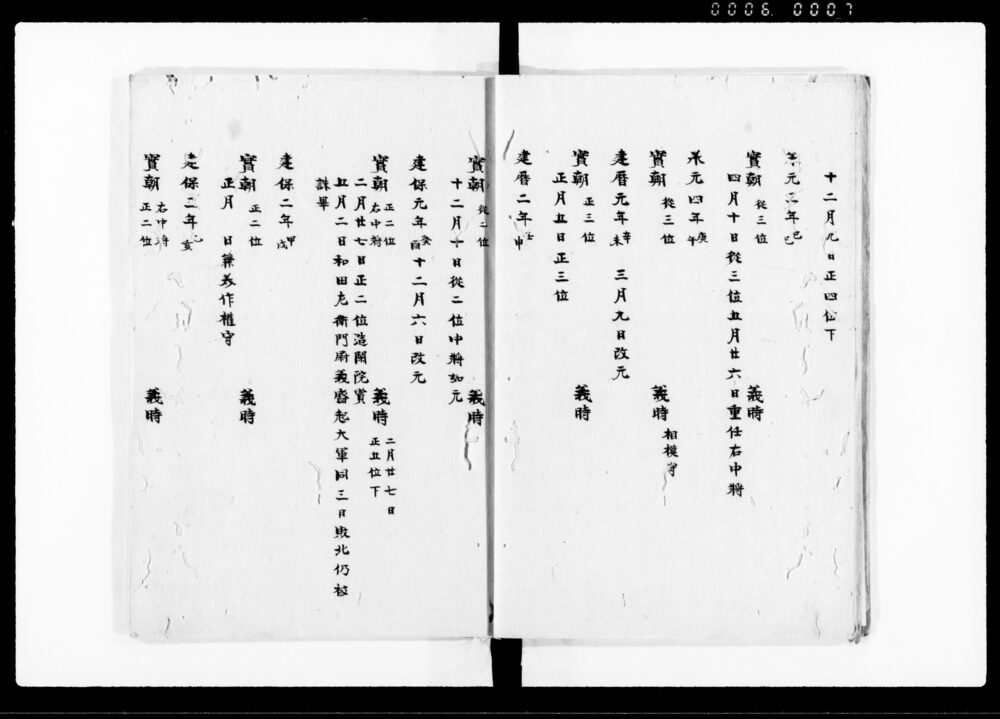 0006 0007
十二月九日正四位下
承元三年己巳
實朝 從三位 義時
四月十日從三位五月廿六日重任右中將
承元四年庚午
實朝 從三位 義時 相模守
建曆元年辛未 三月九日改元
實朝 正三位 義時
正月五日正三位
建曆二年壬申
實朝 從二位 義時
十二月十日從二位中將如元
建保元年癸酉十二月六日改元
實朝 正二位右中將 義時 二月廿七日正五位下
二月廿七日正二位造閑院賞
五月二日和田左衛門尉義盛起大軍同三日敗北仍被
誅畢
建保二年甲戌
實朝 正二位 義時
正月 日兼美作權守
建保三年乙亥
實朝 右中將正二位 義時